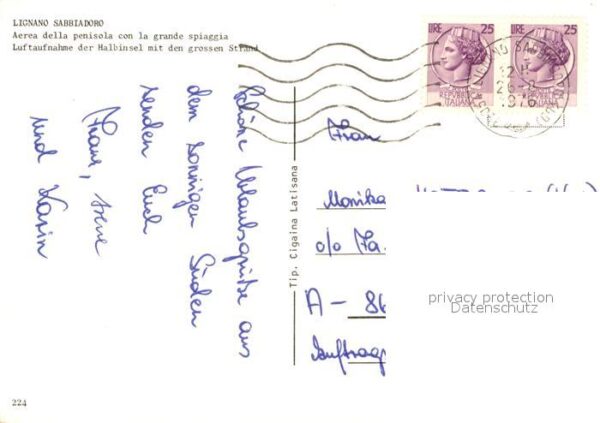 LIGNANO SABBIADORO
Aerea della penisola con la grande spiaggia
Luftaufnahme der Halbinsel mit den grossen Strand
LIRE 25
REPUBBLICA
ITALIANA
LIRE 25
REPUBBLICA
ITALIANA
LIGNANO SABB
12 H
26-8
1976
Schöne Urlaubsgrüße aus
dem sonnigen Süden
senden Euch
Franz, Irene
und Karin
Tip. Cigaina Latisana
Frau
Monika
c/o Fa.
A - 86
privacy protection
Datenschutz
224